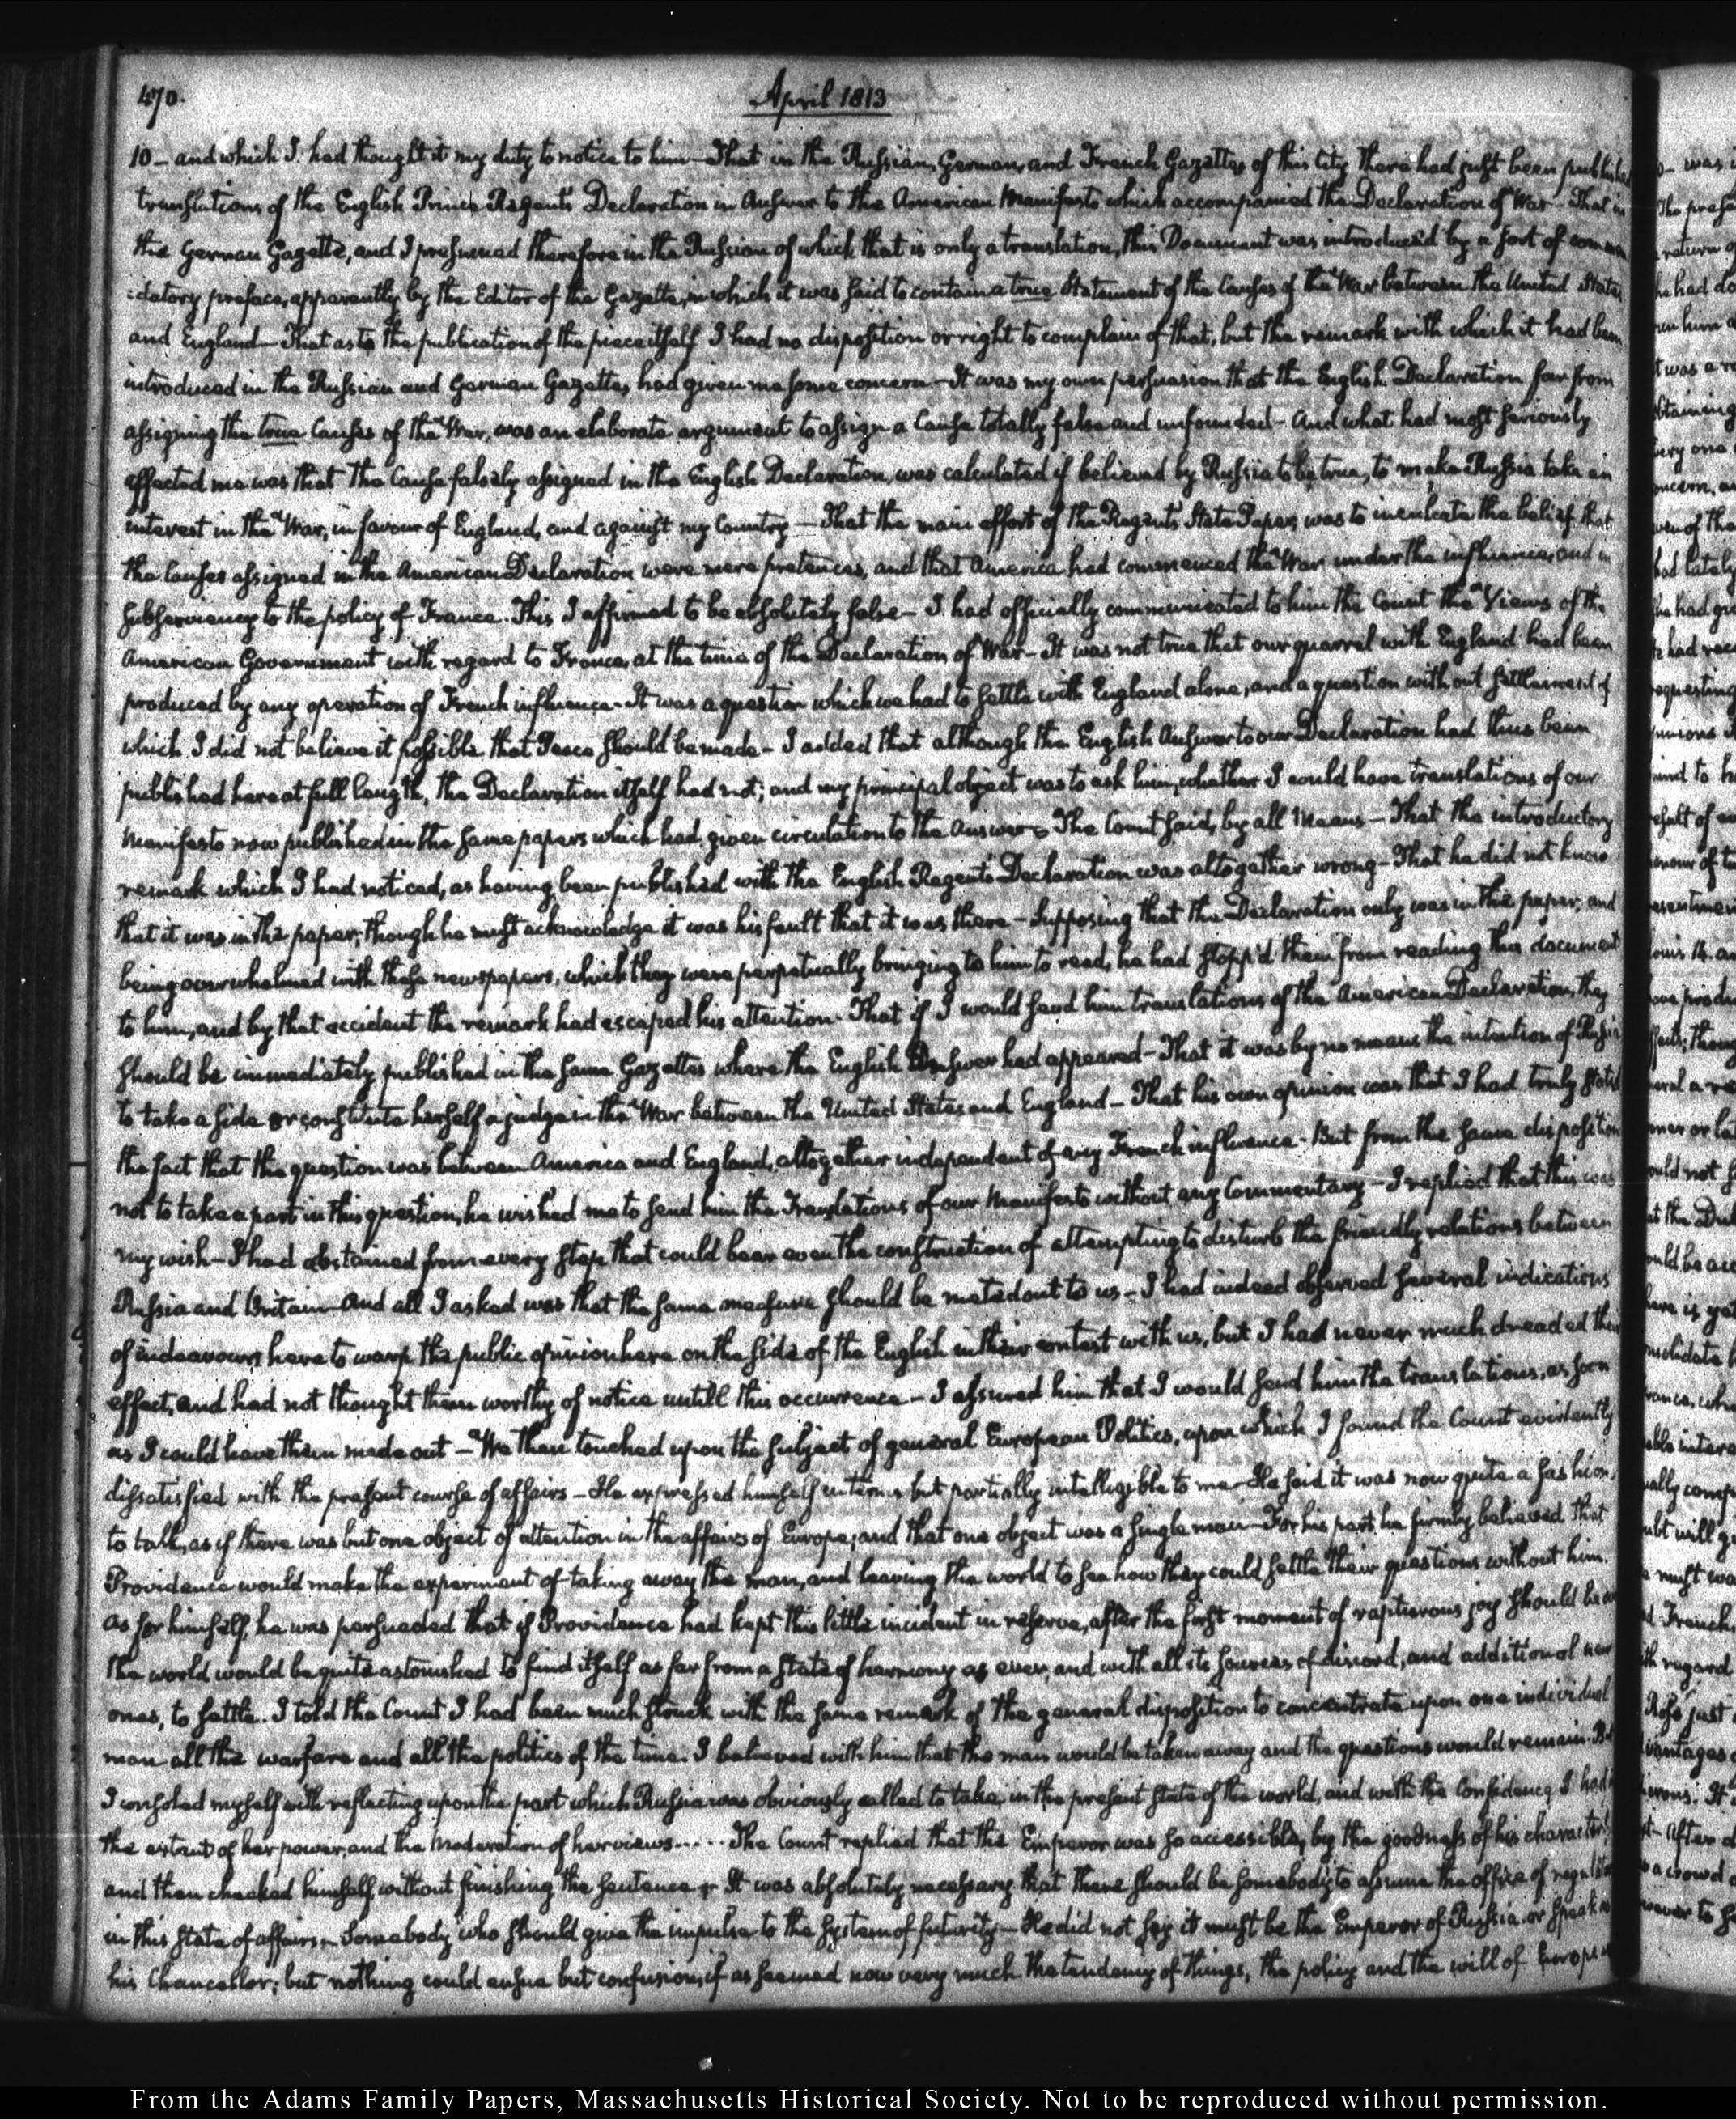 470.
April 1813
10 — and which I had thought it my duty to notice to him — That in the Russian, German, and French Gazettes of this City there had just been published
translations of the English Prince Regent's Declaration in Answer to the American Manifesto which accompanied the Declaration of War — That in
the German Gazette, and I presumed therefore in the Russian of which that is only a translation, this Document was introduced by a sort of commen
:datory preface, apparently by the Editor of the Gazette, in which it was said to contain a true Statement of the Causes of the War between the United States
and England — That as to the publication of the piece itself I had no disposition or right to complain of that, but the remark with which it had been
introduced in the Russian and German Gazettes, had given me some concern — It was my own persuasion that the English Declaration far from
assigning the true Causes of the War, was an elaborate argument to assign a Cause totally false and unfounded — And what had most seriously
affected me was that the Cause falsely assigned in the English Declaration, was calculated if believed by Russia to be true, to make Russia take an
interest in the War, in favour of England, and against my Country — That the main effort of the Regent's State Paper, was to inculcate the belief that
the Causes assigned in the American Declaration were mere pretences, and that America had commenced the War under the influence, and in
subserviency to the policy of France. This I affirmed to be absolutely false — I had officially communicated to him the Count the Views of the
American Government with regard to France, at the time of the Declaration of War — It was not true that our quarrel with England had been
produced by any operation of French influence. It was a question which we had to settle with England alone, and a question without settlement of
which I did not believe it possible that Peace should be made — I added that although the English Answer to our Declaration had thus been
published here at full length, the Declaration itself had not; and my principal object was to ask him, whether I could have translations of our
Manifesto now published in the same papers which had given circulation to the Answer — The Count said, by all Means — That the introductory
remark which I had noticed, as having been published with the English Regent's Declaration was altogether wrong — That he did not know
that it was in the paper; though he must acknowledge it was his fault that it was there — Supposing that the Declaration only was in the paper; and
being overwhelmed with these newspapers, which they were perpetually bringing to him to read, he had stopp'd them from reading this document
to him, and by that accident the remark had escaped his attention. That if I would send him translations of the American Declaration, they
should be immediately published in the same Gazettes where the English Answer had appeared — That it was by no means the intention of Russia
to take a side or constitute herself a judge in the War between the United States and England — That his own opinion was that I had truly stated
the fact that the question was between America and England, altogether independent of any French influence — But from the same disposition
not to take a part in this question, he wished me to send him the Translations of our Manifesto without any Commentary — I replied that this was
my wish — I had abstained from every step that could bear even the construction of attempting to disturb the friendly relations between
Russia and Britain — And all I asked was that the same measure should be meted out to us — I had indeed observed several indications
of indeavours here to warp the public opinion here on the side of the English in their contest with us, but I had never much dreaded their
effect, and had not thought them worthy of notice untill this occurrence — I assured him that I would send him the translations, as soon
as I could have them made out — We then touched upon the subject of general European Politics, upon which I found the Count evidently
dissatisfied with the present course of affairs — He expressed himself in terms but partially intelligible to me — He said it was now quite a fashion,
to talk, as if there was but one object of attention in the affairs of Europe; and that one object was a single man — For his part, he firmly believed that
Providence would make the experiment of taking away the man, and leaving the world to see how they could settle their questions without him.
As for himself, he was persuaded that if Providence had kept this little incident in reserve, after the first moment of rapturous joy should be over
the world would be quite astonished to find itself as far from a state of harmony as ever, and with all its sources of discord, and additional new
ones, to settle. I told the Count I had been much struck with the same remark of the general disposition to concentrate upon one individual
man all the warfare and all the politics of the time. I believed with him that the man would be taken away and the questions would remain. But
I consoled myself with reflecting upon the part which Russia was obviously called to take, in the present state of the world, and with the Confidence I had in
the extent of her power, and the Moderation of her views..... The Count replied that the Emperor was so accessible, by the goodness of his character!
and then checked himself, without finishing the sentence — It was absolutely necessary that there should be somebody to assume the office of regulator
in this state of affairs — Somebody who should give the impulse to the System of futurity — He did not say it must be the Emperor of Russia, or speak as
his Chancellor; but nothing could ensue but confusion, if as seemed now very much the tendency of things, the policy and the will of Europe
From the Adams Family Papers, Massachusetts Historical Society. Not to be reproduced without permission.